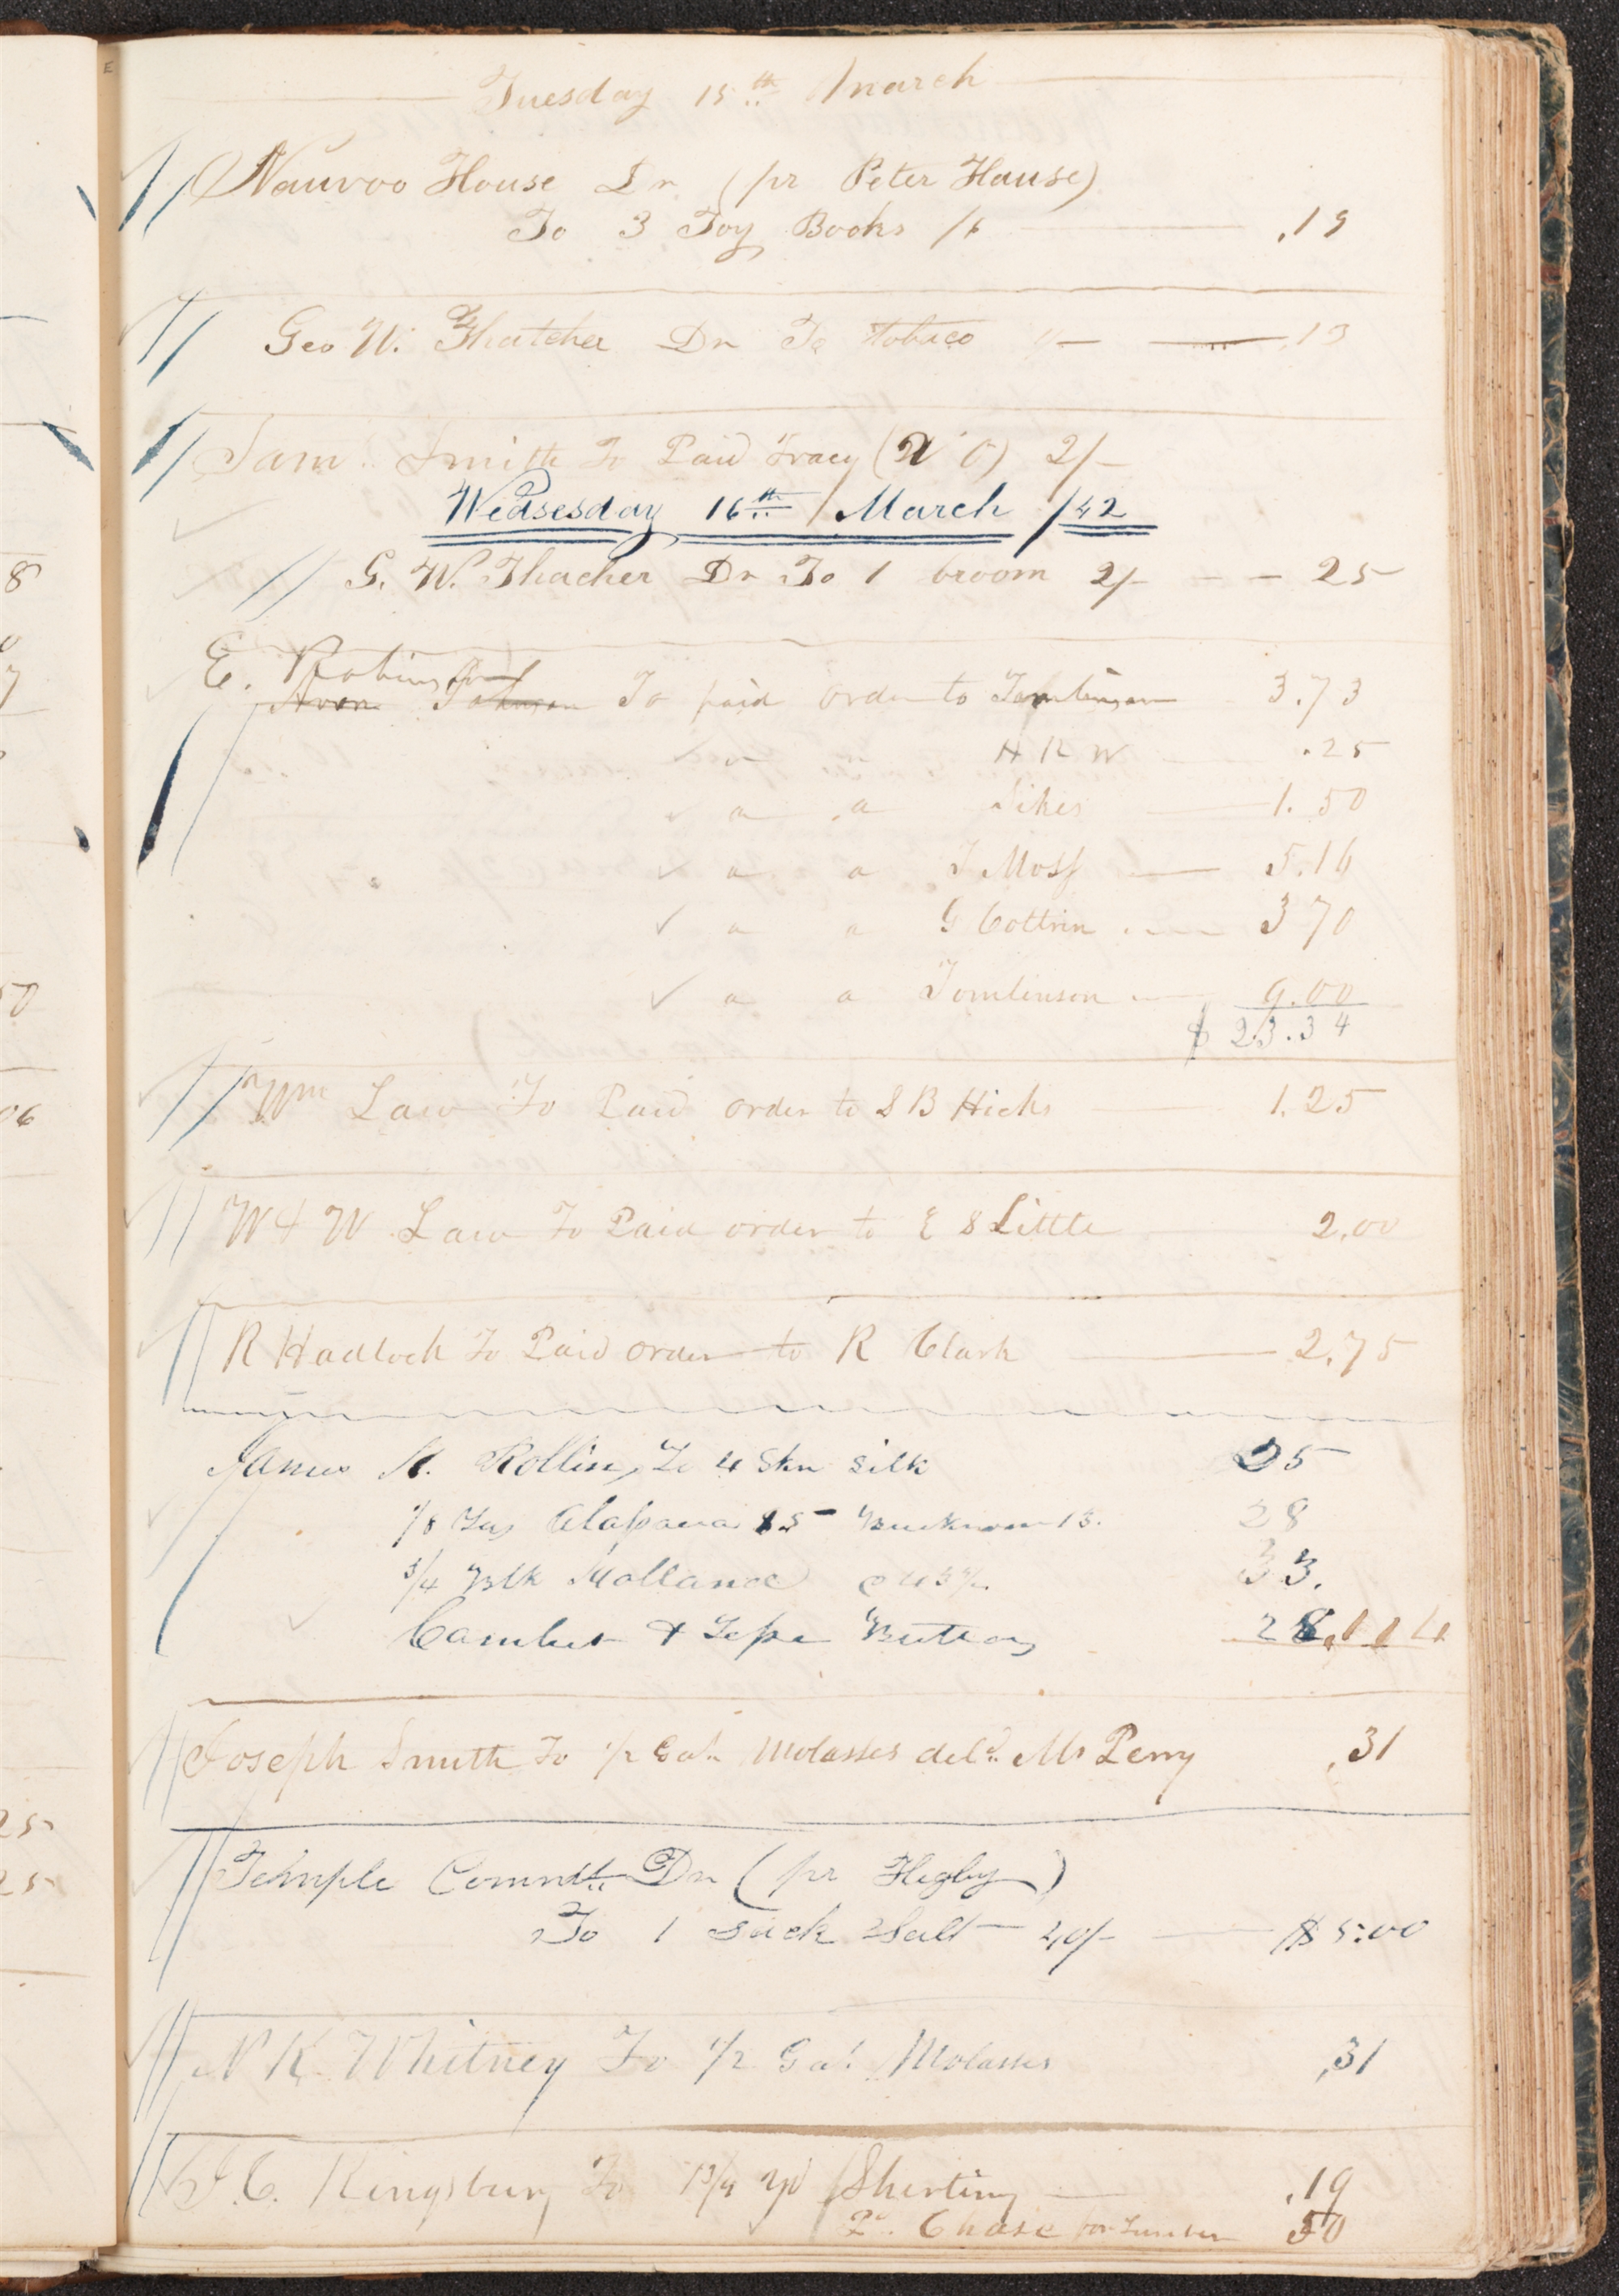 Tuesday 15th March
Nauvoo House Dr (pr Peter Hause)
To 3 Toy Books /6 .19
Geo W. Thatcher Dr To tobaco 1/- .13
Sam. Smith To Paid Tracy ( ) 2/-
Wedsesday 16th March /42
G. W. Thacher Dr To 1 broom 2/- - - 25
E. Robinson
Aron Johnson To paid order to Tomlinson 3.73
" " H K W .25
" " Sikes 1.50
" " J Moss 5.16
" " G Cottrin 3 70
" " Tomlinson 9.00
$ 23.34
Wm Law To Paid order to S B Hicks 1.25
W & W Law To Paid order to E S Little 2.00
R Hadlock To Paid order to R Clark 2.75
James H. Rollins, To 4 Skn silk 25
1/8 Yas 13. 28
3/4 Blk Holland 33.
& Buttons 28, 1 14
Joseph Smith To 1/2 Gal. Molasses deld. Ms Perry .31
Temple Committ. Dr (pr Higby)
To 1 sack Salt 40/- $5:00
N K Whitney To 1/2 Gal. Molasses .31
J. C. Kingsbury To 1 3/4 yd Shirting .19
Pd. Chase for 50
8
50
06
25
25
E